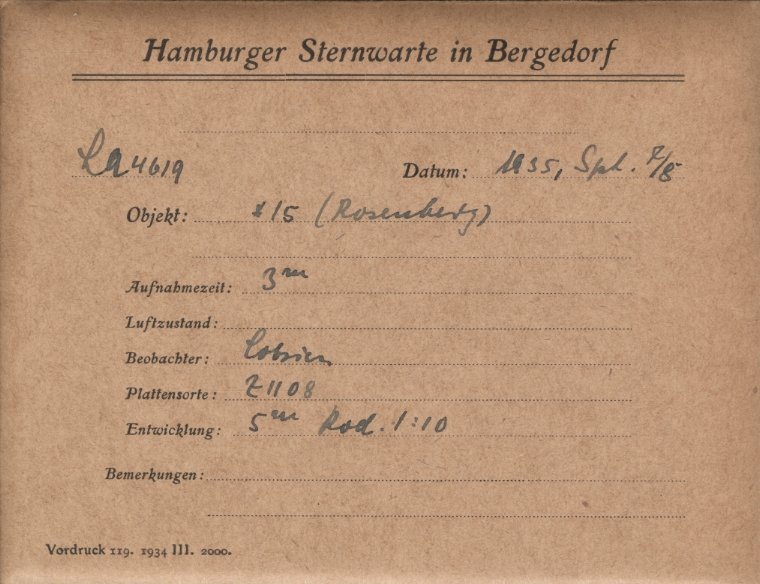 Hamburger Sternwarte in Bergedorf
La 4619 Datum: 1935, Spt. 7/8
Objekt: #15 (Rosenberg)
Aufnahmezeit: 3m
Luftzustand:
Beobachter:
Plattensorte: Z1108
Entwicklung: 5m Rod. 1:10
Bemerkungen:
Vordruck 119. 1934 III. 2000.